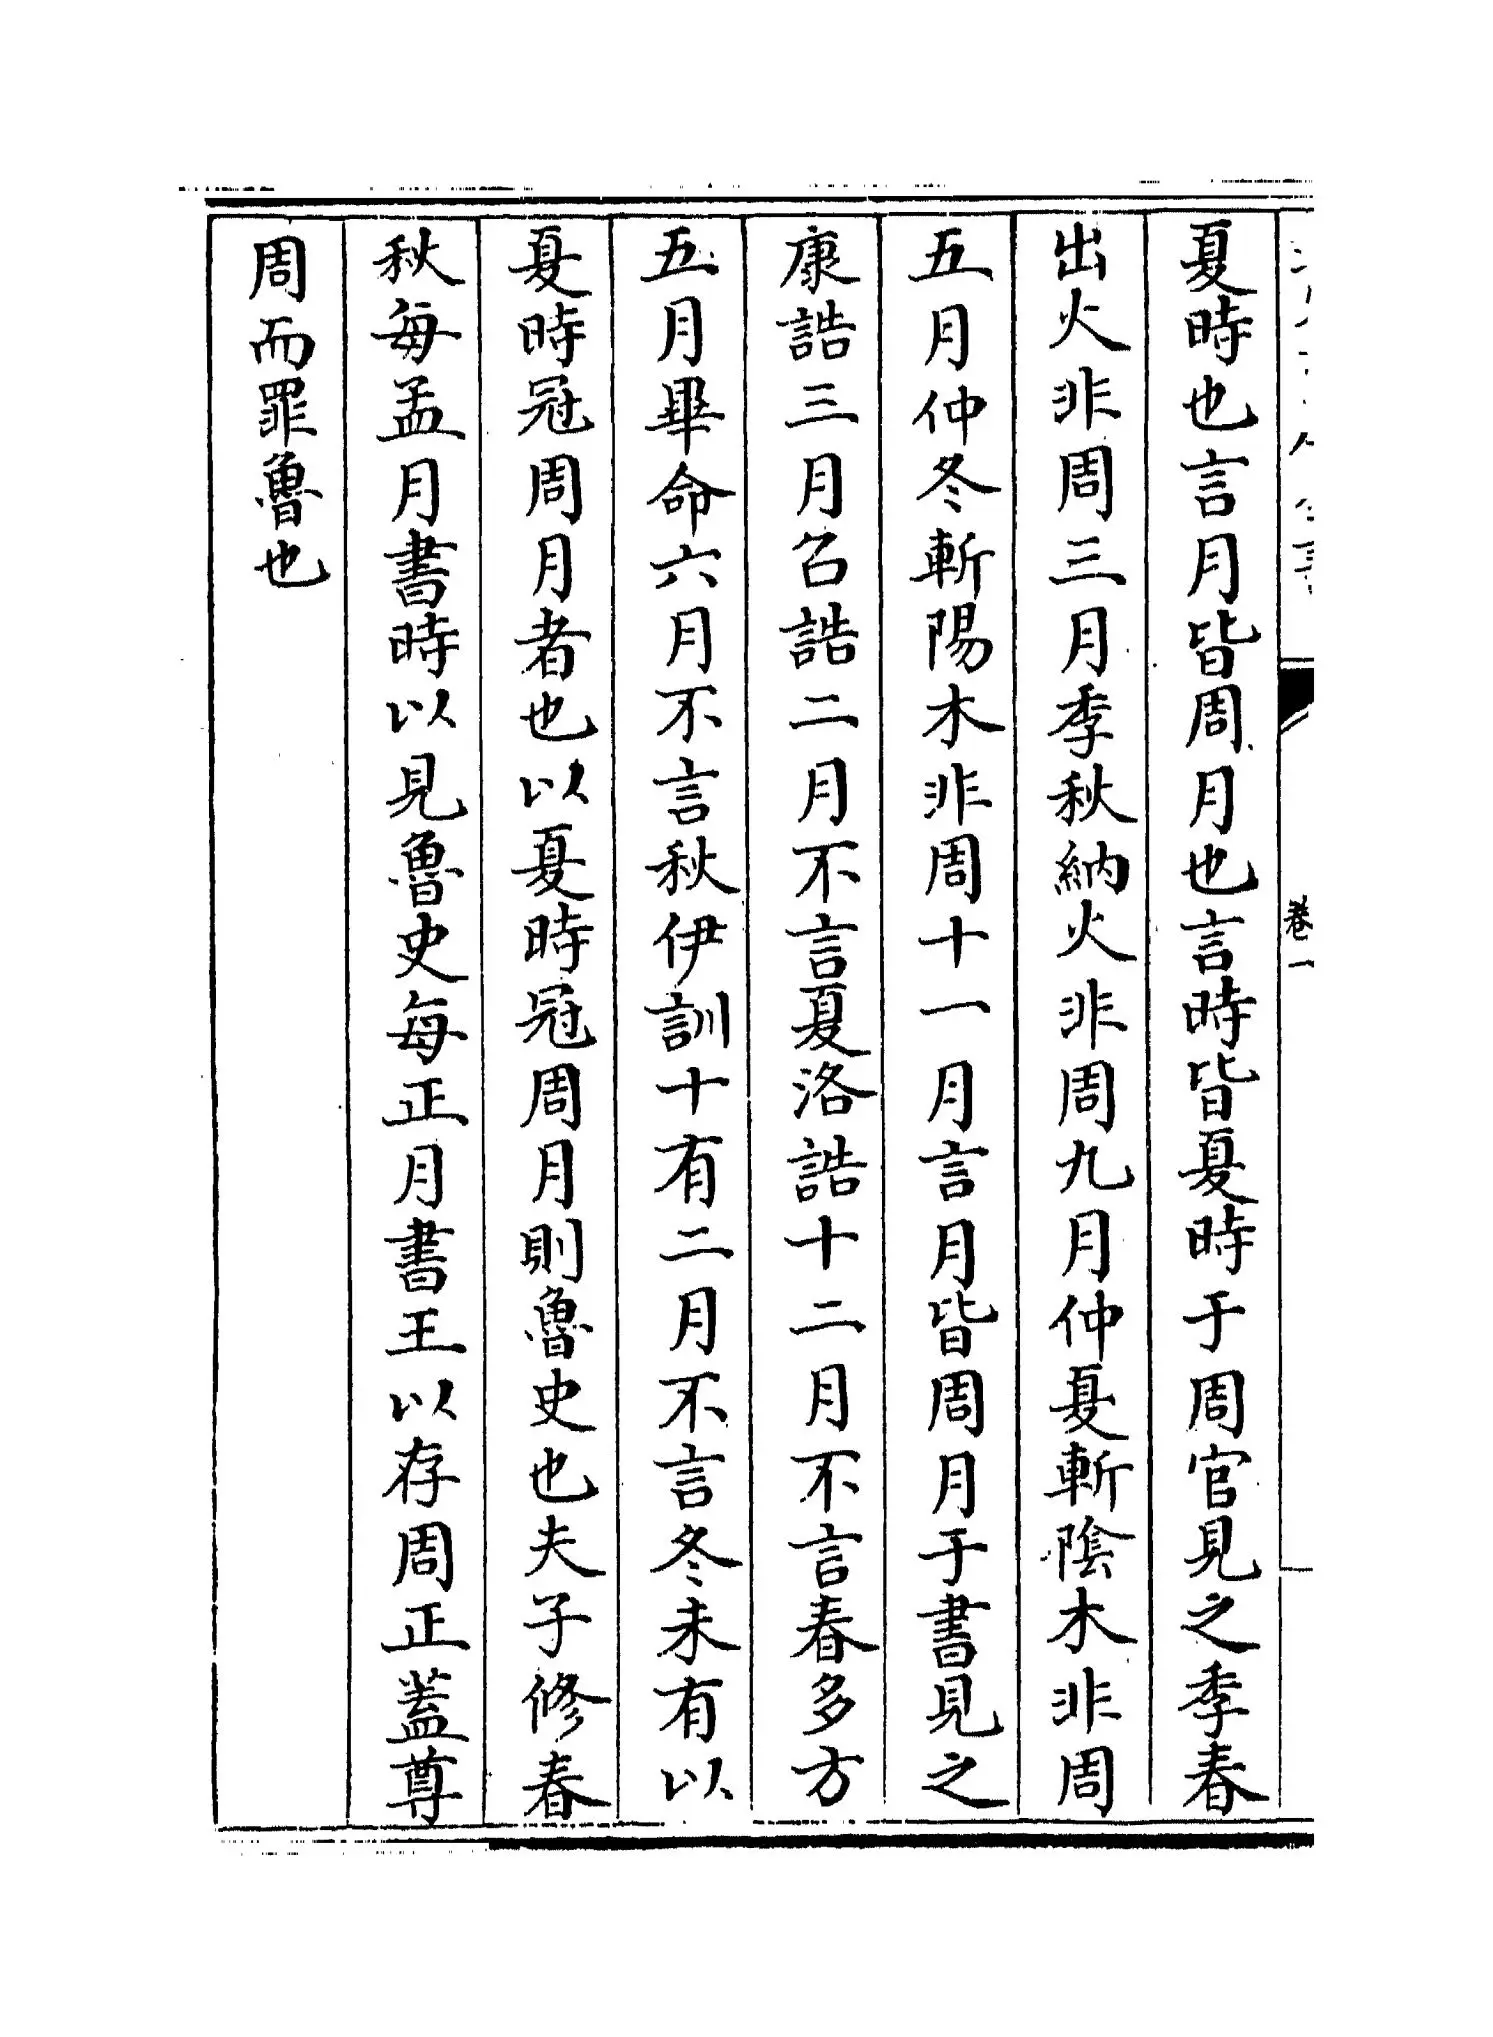 夏時也言月皆周月也言時皆夏時于周官見之季春
出火非周三月季秋納火非周九月仲夏斬陰木非周
五月仲冬斬陽木非周十一月言月皆周月于書見之
康誥三月召誥二月不言夏洛誥十二月不言春多方
五月畢命六月不言秋伊訓十有二月不言冬未有以
夏時冠周月者也以夏時冠周月則魯史也夫子修春
秋每孟月書時以見魯史每正月書王以存周正蓋尊
周而罪魯也
卷一